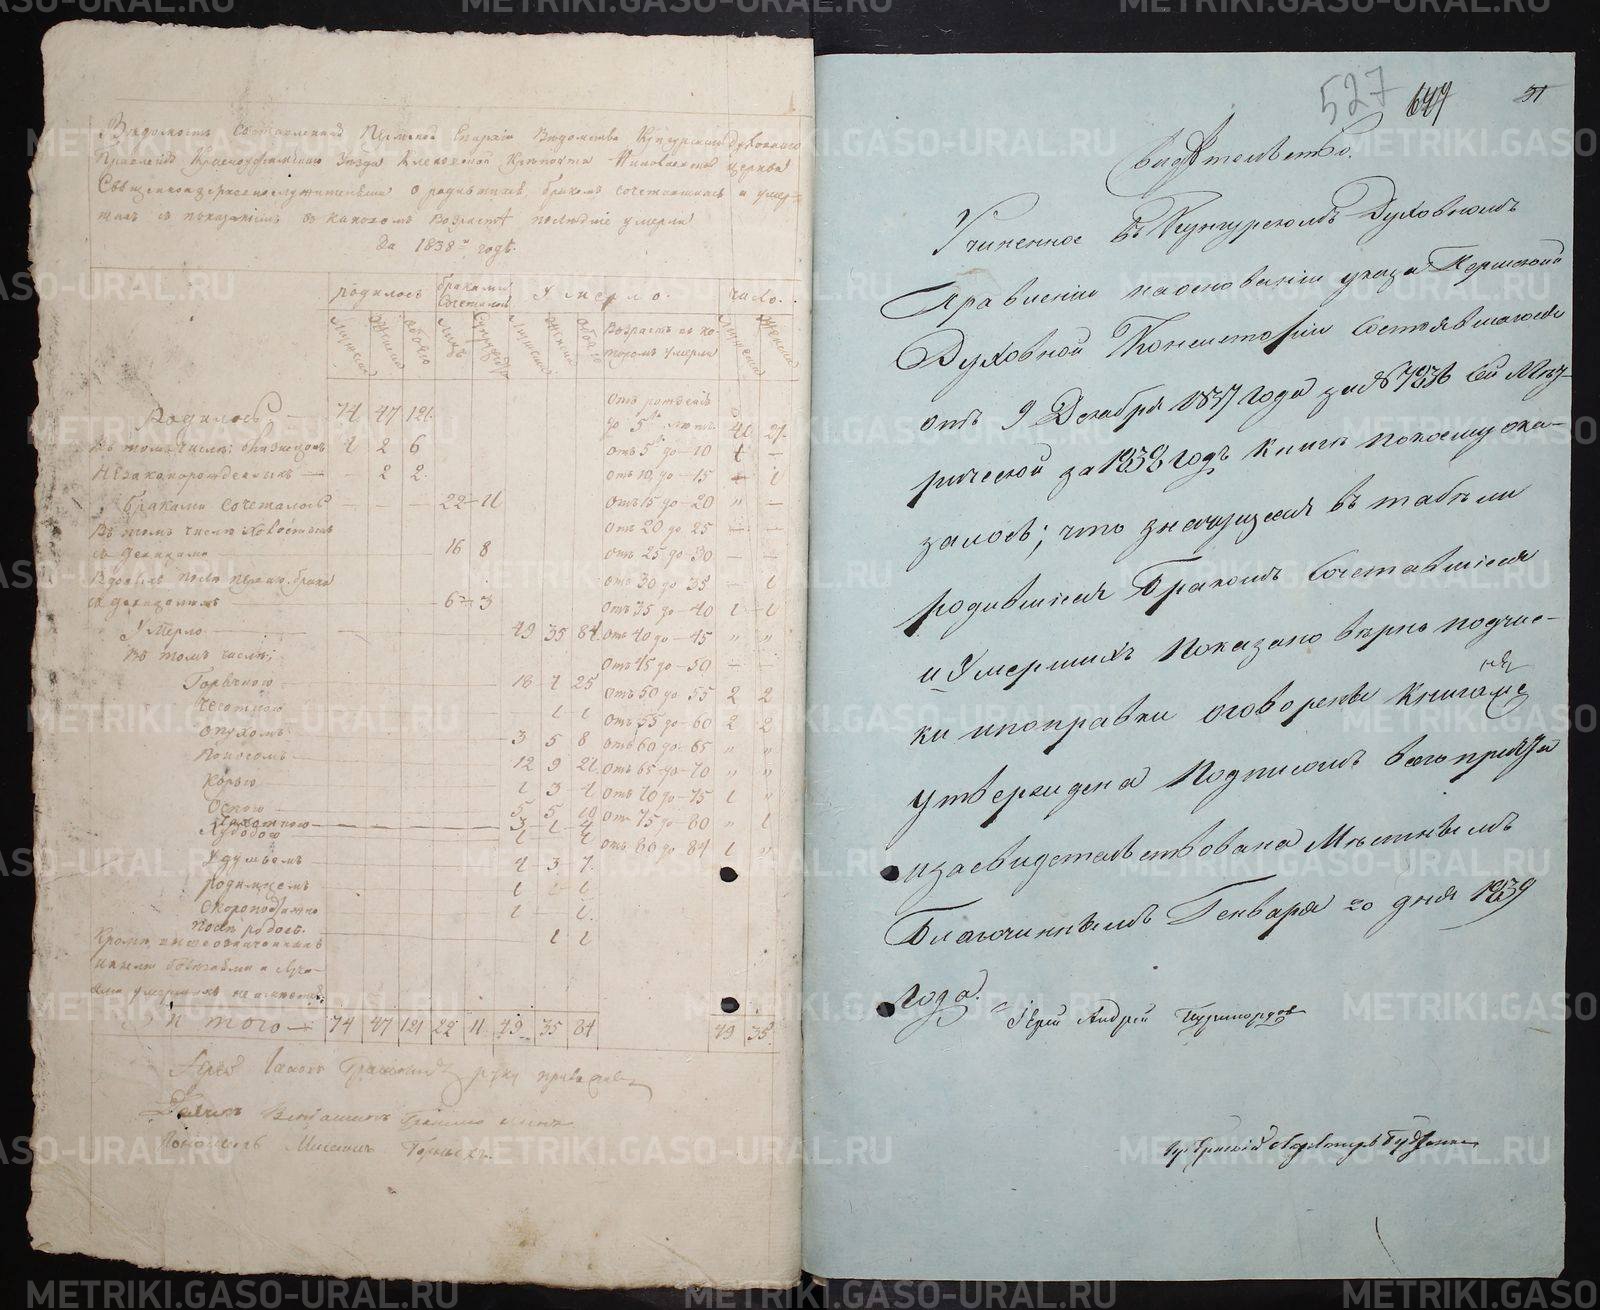 Ведомость составленная Пермской Епархіи Ведомства Кунгурскаго Духовнаго
Правленія Красноуфимскаго Уезда Кленовской Крепости Николаевской церкви
Священноцерковнослужителями о родившихся, бракомъ сочетавшихся и умер-
шихъ съ показаніемъ въ какомъ возрасте последніе умерли
За 1838й годъ.
родилось браками сочеталось Умерло. число.
Мужска Женска обоего Лицъ Супружествъ Мужска Женска обоего Возрастъ въ ко-
торомъ умерли Мужска Женска
Родилось 74 47 121 Отъ рожденія
до 5ти летъ 41 27
Въ томъ числе: близнецовъ 4 2 6 отъ 5 до 10 1 —
Незаконорожденныхъ — 2 2 отъ 10 до 15 — 1
Браками сочеталось 22 11 отъ 15 до 20 „ —
Въ томъ числе холостыхъ отъ 20 до 25 — —
съ девицами 16 8 отъ 25 до 30 — —
Вдовыхъ после перваго брака отъ 30 до 35 — 1
съ девицами 6 3 отъ 35 до 40 1 1
Умерло 49 35 84 отъ 40 до 45 „ „
Въ томъ числе: отъ 45 до 50 — —
Горячкою 18 7 25 отъ 50 до 55 2 2
Чесоткою 1 1 отъ 55 до 60 2 2
опухомъ 3 5 8 отъ 60 до 65 „ „
Поносомъ 12 9 21 отъ 65 до 70 „ „
Корью 1 3 4 отъ 70 до 75 1 „
Оспою 5 5 10 отъ 75 до 80 „ 1
Чахоткою 3 1 4
Худобою отъ 80 до 84 1 „
Удушьемъ 4 3 7
родимцемъ 1 1
Скоропостижно 1 1
После родовъ 1 1
Кроме вышеозначенныхъ
иными болезнями и случа-
ями умершихъ не имеется.
Итого 74 47 121 22 11 49 35 84 49 35
руку приложилъ
Дьячекъ Веніаминъ
Пономарь
527
51
Свидетельство.
Учиненное въ Кунгурскомъ Духовномъ
Правленіи наосновании указа Пермской
Духовной Консисторіи состоявшагося
отъ 9 Декабря 1837 года за № 7936 сей Мет-
рической за 1838 Годъ книги покоему ока-
залось; что значущіяся въ табели
родившіеся Бракомъ Сочетавшіеся
и Умершихъ Показано верно подчис-
ки ипоправки оговорены Книга сія
утверждена Подписомъ всего причта
изасвидетельствована Местнымъ
Благочиннымъ Генваря 20 дня 1839
Года.
Іерей Андрей